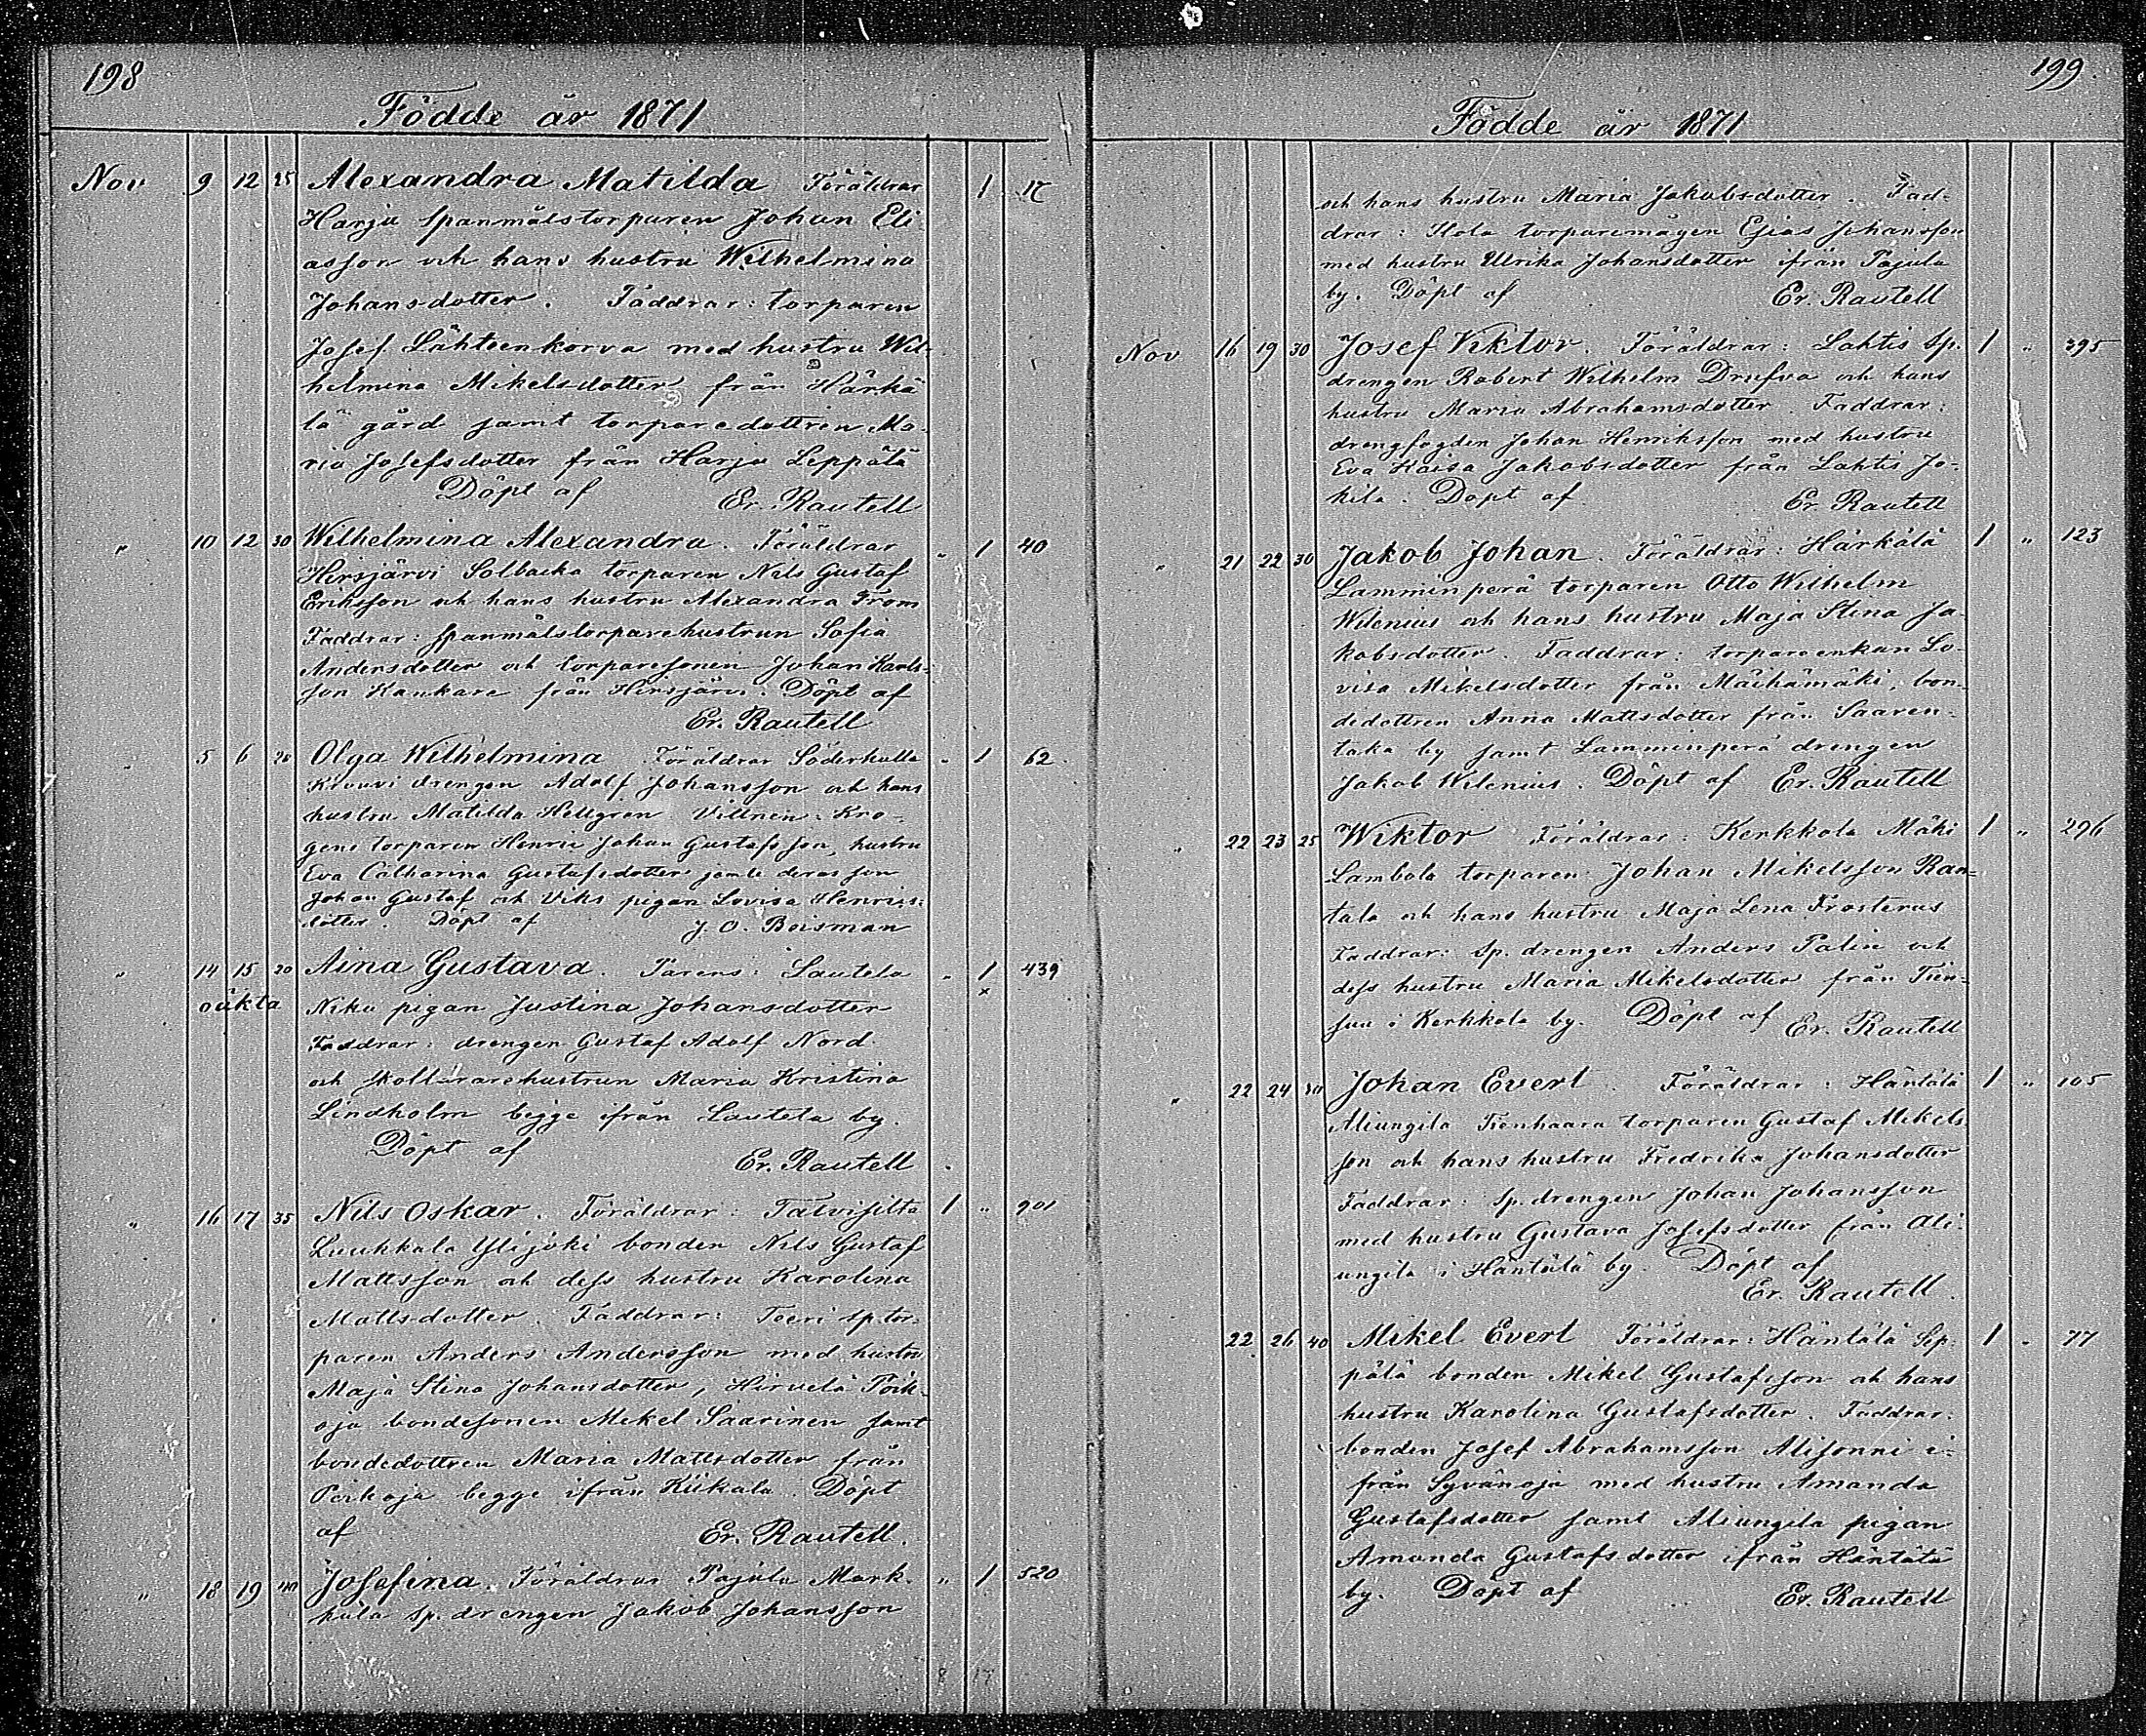 198
Födde år 1871
Nov 9 12 25 Alexandra Matilda Föräldrar 1 17
Harju spanmålstorparen Johan Eli-
asson och hans hustru Wilhelmina
Johansdotter. Faddrar: torparen
Josef Lähteenkorva med hustru Wil-
helmina Mikelsdotter från Härkä
lä gård samt torparedottren Ma-
ria Josefsdotter från Harju Leppälä
Döpt af Er. Rautell
" 10 12 30 Wilhelmina Alexandra. Föräldrar " 1 40
Hirsjärvi Solbacka torparen Nils Gustaf
Eriksson och hans hustru Alexandra From
Faddrar: spanmålstorparehustrun Sofia
Andersdotter och torparesonen Johan Karls-
son Kankare från Hirsjärvi. Döpt af
Er. Rautell
" 5 6 20 Olga Wilhelmina Föräldrar Söderkulla " 1 62
Krouvi drengen Adolf Johansson och hans
hustru Matilda Hellgren Vittnen: Kro-
gens torparen Henric Johan Gustafsson, hustru
Eva Catharina Gustafsdotter jemte deras son
Johan Gustaf och Viks pigan Lovisa Henrics-
dotter. Döpt af J. O. Boisman
" 14 15 20 Aina Gustava. Parens: Lautela " 1 439
oäkta Niku pigan Justina Johansdotter x
Faddrar: drengen Gustaf Adolf Nord
och skollärarehustrun Maria Kristina
Lindholm begge ifrån Lautela by.
Döpt af Er. Rautell
" 16 17 35 Nils Oskar. Föräldrar: Talvisilta 1 " 901
Luukkala Ylijoki bonden Nils Gustaf
Mattsson och dess hustru Karolina
Mattsdotter. Faddrar: Teeri sp.tor-
paren Anders Andersson med hustru
Maja Stina Johansdotter, Hirvelä Poik-
oja bondesonen Mikel Saarinen samt
bondedottren Maria Mattsdotter från
Poikoja begge ifrån Kiikala. Döpt
af Er. Rautell.
" 18 19 40 Josefina. Föräldrar Pajula Mark- " 1 520
kula sp. drengen Jakob Johansson
199.
Födde år 1871
och hans hustru Maria Jakobsdotter. Fad-
drar: Hola torparemågen Esias Johansson
med hustru Ulrika Johansdotter ifrån Pajula
by. Döpt af Er. Rautell
Nov 16 19 30 Josef Viktor. Föräldrar: Lahtis sp. 1 " 395
drengen Robert Wilhelm Drufva och hans
hustru Maria Abrahamsdotter. Faddrar:
drengfogden Johan Henriksson med hustru
Eva Kaisa Jakobsdotter från Lahtis Jo-
kila. Döpt af Er. Rautell
" 21 22 30 Jakob Johan. Föräldrar: Härkälä 1 " 123
Lamminperä torparen Otto Wilhelm
Wilenius och hans hustru Maja Stina Ja-
kobsdotter. Faddrar: torpareenkan Lo-
visa Mikelsdotter från Mäihämäki, bon-
dedottren Anna Mattsdotter från Saaren-
taka by samt Lamminperä drengen
Jakob Wilenius. Döpt af Er. Rautell
" 22 23 25 Wiktor Föräldrar: Kerkkola Mäki 1 " 296
Lambola torparen Johan Mikelsson Ran-
tala och hans hustru Maja Lena Frosterus
Faddrar: sp. drengen Anders Palin och
dess hustru Maria Mikelsdotter från Tien-
suu i Kerkkola by. Döpt af Er. Rautell
" 22 24 30 Johan Evert. Föräldrar: Häntälä 1 " 105
Aliungila Tienhaara torparen Gustaf Mikels
son och hans hustru Fredrika Johansdotter
Faddrar: Sp. drengen Johan Johansson
med hustru Gustava Josefsdotter från Ali-
ungila i Häntälä by. Döpt af
Er. Rautell.
22 26 40 Mikel Evert Föräldrar: Häntälä Sep- 1 " 77
pälä bonden Mikel Gustafsson och hans
hustru Karolina Gustafsdotter. Faddrar:
bonden Josef Abrahamsson Alisonni i-
från Syvänoja med hustru Amanda
Gustafsdotter samt Aliungila pigan
Amanda Gustafsdotter ifrån Häntälä
by. Döpt af Er. Rautell